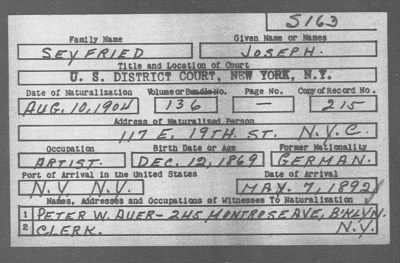 S163
Family Name Given Name or Names
SEYFRIED JOSEPH.
Title and Location of Court
U. S. DISTRICT COURT, NEW YORK, N.Y.
Date of Naturalization Volume or Bundle No. Page No. Copy of Record No.
AUG. 10, 1904 136 — 215
Address of Naturalized Person
117 E. 19TH. ST. N.Y.C.
Occupation Birth Date or Age Former Nationality
ARTIST. DEC. 12, 1869 GERMAN.
Port of Arrival in the United States Date of Arrival
N.Y. N.Y. MAY. 7, 1892
Names, Addresses and Occupations of Witnesses To Naturalization
1 PETER W. AUER - 245 MONTROSE AVE, B'KLYN.
2 CLERK. N.Y.